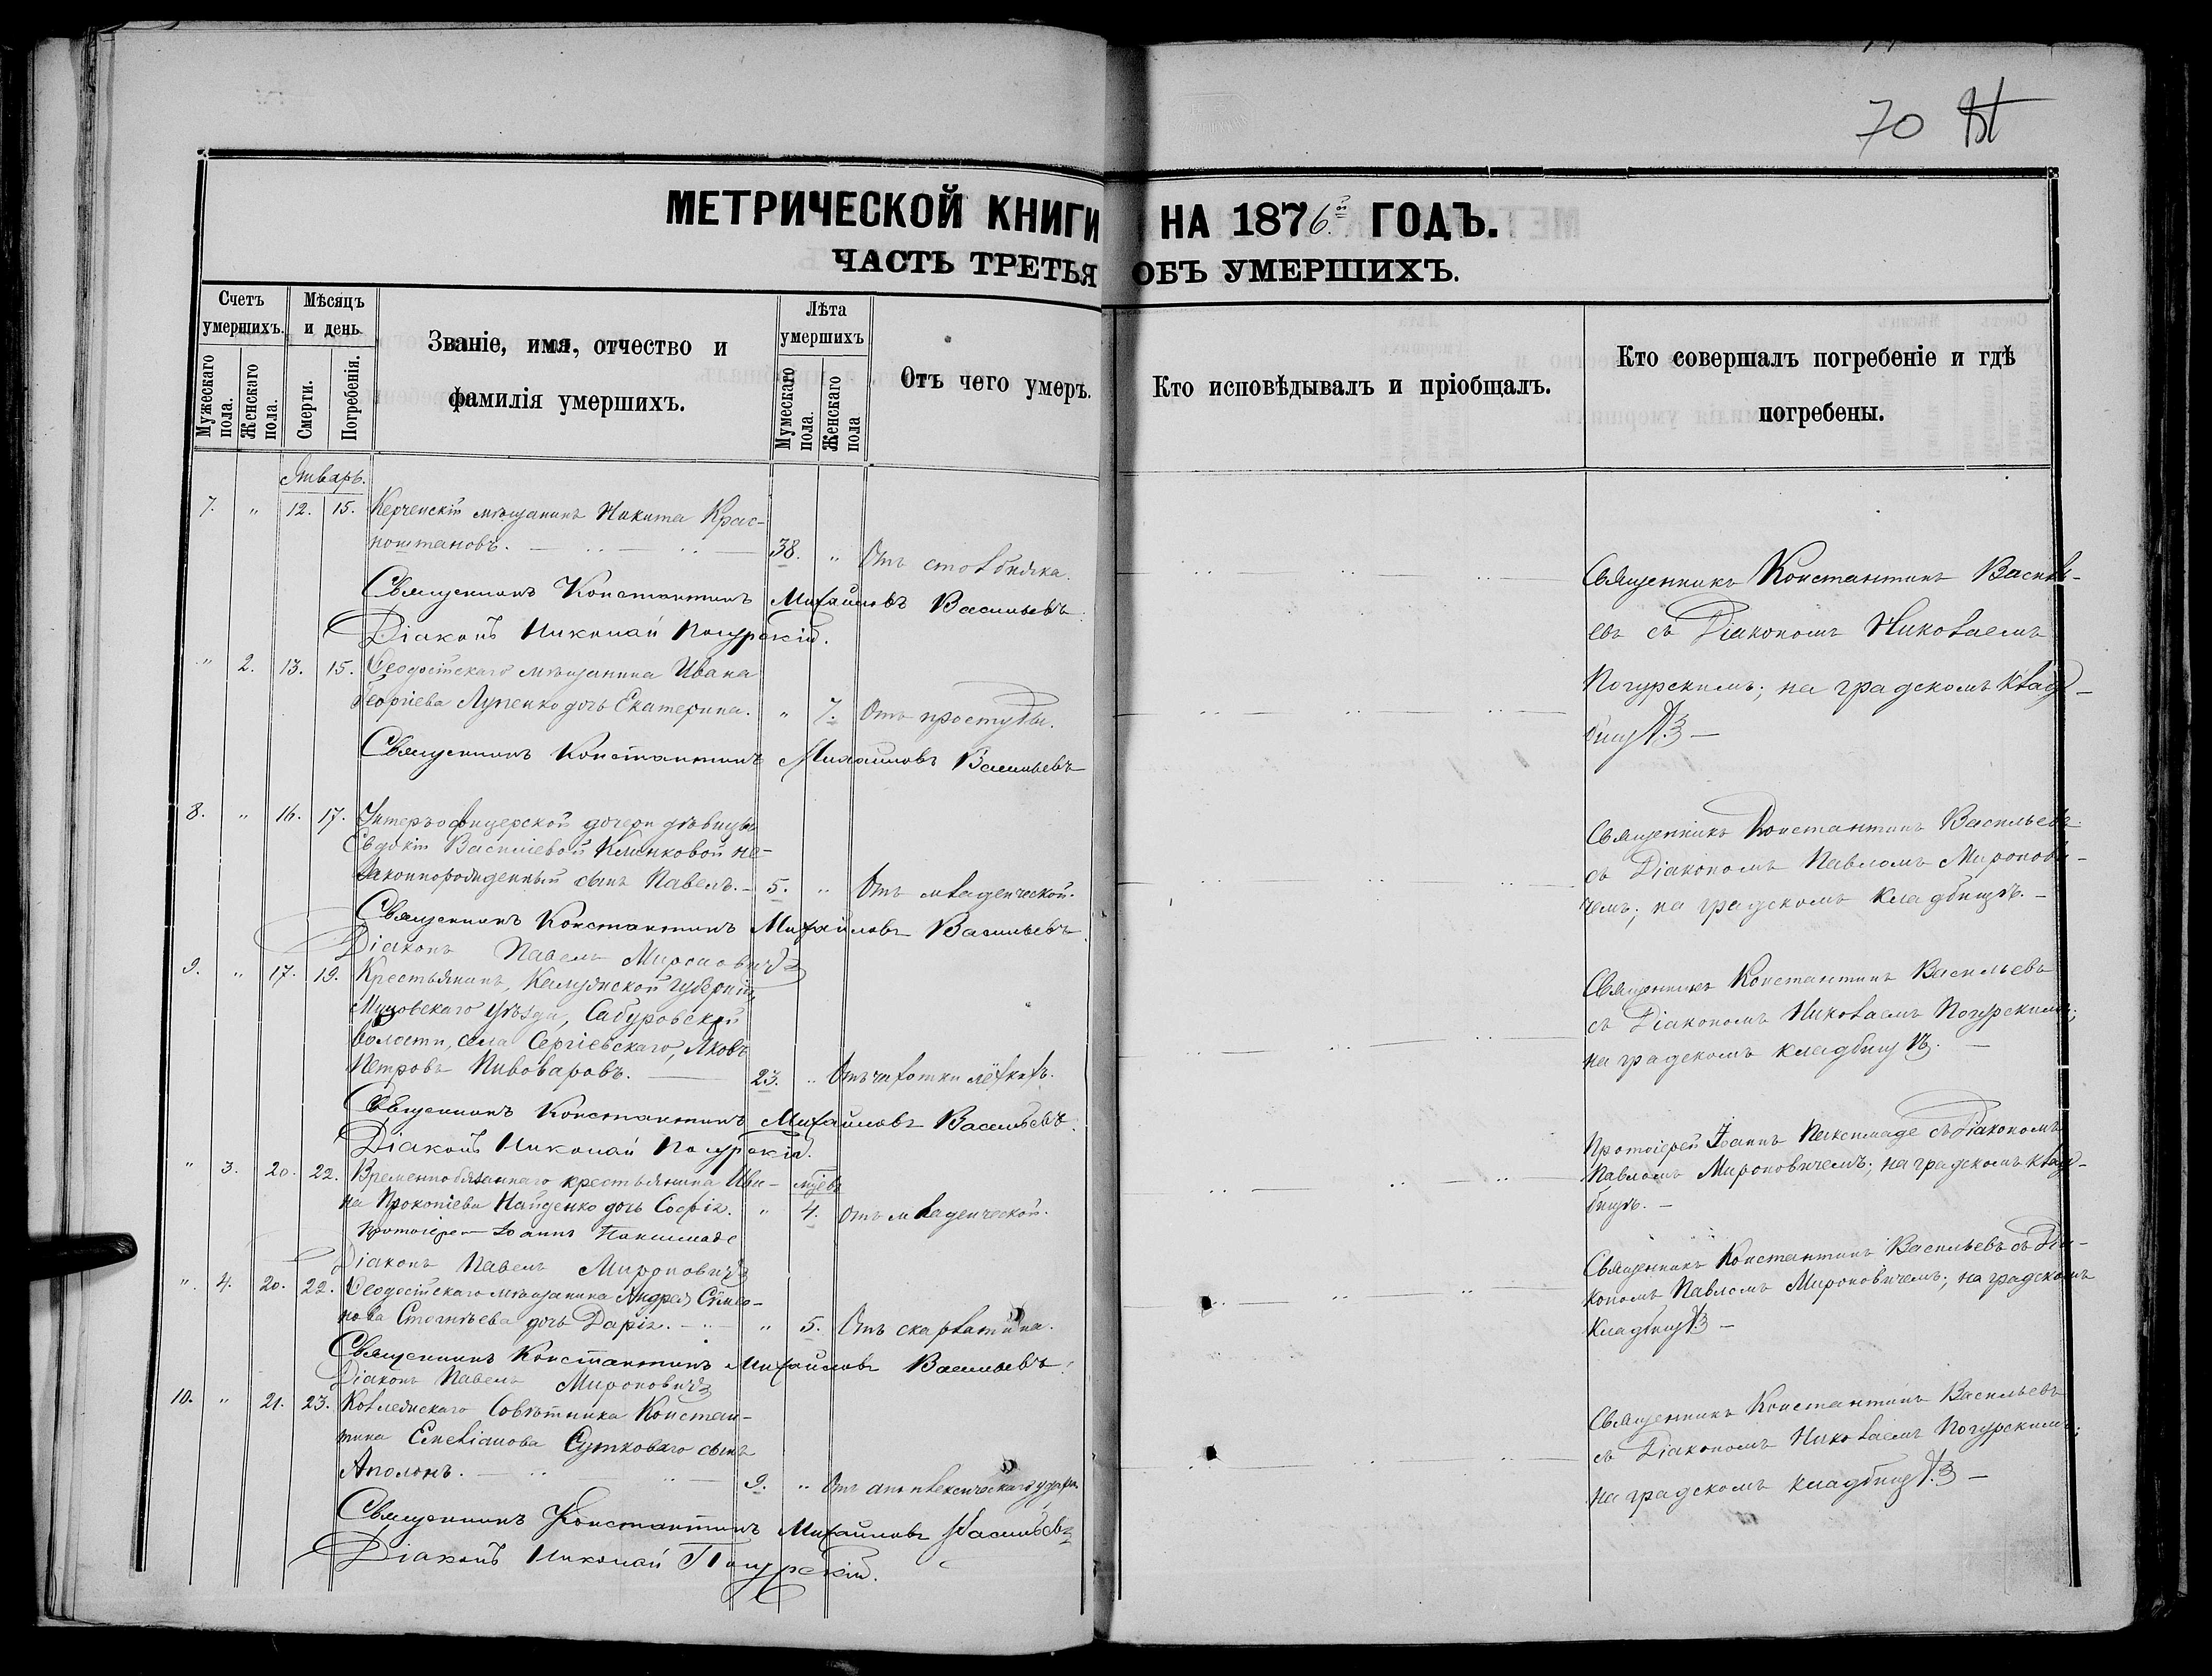 70
МЕТРИЧЕСКОЙ КНИГИ НА 1876й ГОДЪ.
ЧАСТЬ ТРЕТЬЯ ОБЪ УМЕРШИХЪ.
Счетъ умершихъ.
Мужескаго пола.
Женскаго пола.
Мѣсяцъ и день
Смерти.
Погребенія.
Званіе, имя, отчество и
фамилія умершихъ.
Лѣта умершихъ
Мужескаго пола.
Женскаго пола
Отъ чего умеръ.
Кто исповѣдывалъ и пріобщалъ.
Кто совершалъ погребеніе и гдѣ
погребены.
Январь.
7. " 12. 15. Керченскій мѣщанинъ Никита Крас-
ноштановъ. 38. " Отъ столбняка.
Священникъ Константинъ Михайловъ Васильевъ.
Діаконъ Николай Погурскій.
Священникъ Константинъ Василь-
евъ съ Діакономъ Николаемъ
Погурскимъ; на градскомъ клад-
бищѣ
" 2. 13. 15. Ѳеодосійскаго мѣщанина Ивана
Георгіева Луценко дочь Екатерина. " 7. Отъ простуды.
Священникъ Константинъ Михайловъ Васильевъ
8. " 16. 17. Унтеръ-офицерской дочери дѣвицы
Евдокіи Василіевой незаконнорожденный сынъ Павелъ. 5. " Отъ младенческой.
Священникъ Константинъ Михайловъ Васильевъ
Діаконъ Павелъ Мироновичъ
Священникъ Константинъ Васильевъ
съ Діакономъ Павломъ Миронови-
чемъ; на градскомъ кладбищѣ.
9. " 17. 19. Крестьянинъ, Калужской губерніи,
уѣзда, Сабуровской
волости, села Сергіевскаго, Яковъ
Петровъ Пивоваровъ. 23. " Отъ чахотки лёгкихъ.
Священникъ Константинъ Михайловъ Васильевъ.
Діаконъ Николай Погурскій.
Священникъ Константинъ Васильевъ
съ Діакономъ Николаемъ Погурскимъ;
на градскомъ кладбищѣ.
" 3. 20. 22. Временнообязаннаго крестьянина Ива-
на Прокопіева Найденко дочь Софія. " 4. Отъ младенческой.
Протоіерей Іоаннъ
Діаконъ Павелъ Мироновичъ
Протоіерей Іоаннъ съ Діакономъ
Павломъ Мироновичемъ; на градскомъ клад-
бищѣ.
" 4. 20. 22. Ѳеодосійскаго мѣщанина Андрея Симео-
нова дочь Дарія. " 5. Отъ скарлатина.
Священникъ Константинъ Михайловъ Васильевъ.
Діаконъ Павелъ Мироновичъ
Священникъ Константинъ Васильевъ съ Діа-
кономъ Павломъ Мироновичемъ; на градскомъ
кладбищѣ
10. " 21. 23. Коллежскаго Совѣтника Констан-
тина сынъ
Аполонъ. 9. " Отъ апоплексическаго удара.
Священникъ Константинъ Михайловъ Васильевъ
Діаконъ Николай Погурскій.
Священникъ Константинъ Васильевъ
съ Діакономъ Николаемъ Погурскимъ;
на градскомъ кладбищѣ